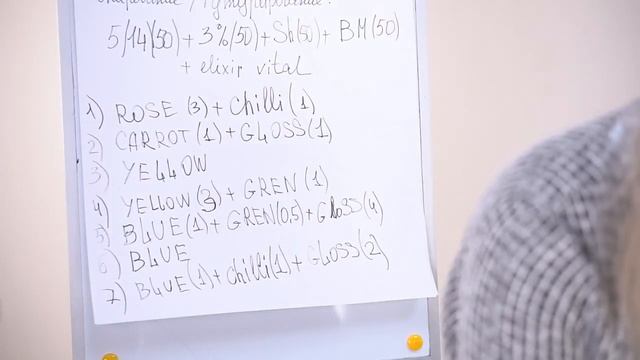 5/14(50) + 3%(50) + Sh(50) + BM(50)
+ elixir vital
1) ROSE (3) + Chilli (1)
2) CARROT (1) + GLOSS (1)
3) YELLOW
4) YELLOW (3) + GREN (1)
5) BLUE (1) + GREN (0,5) + GLOSS (4)
6) BLUE
7) BLUE (1) + chilli (1) + GLOSS (2)